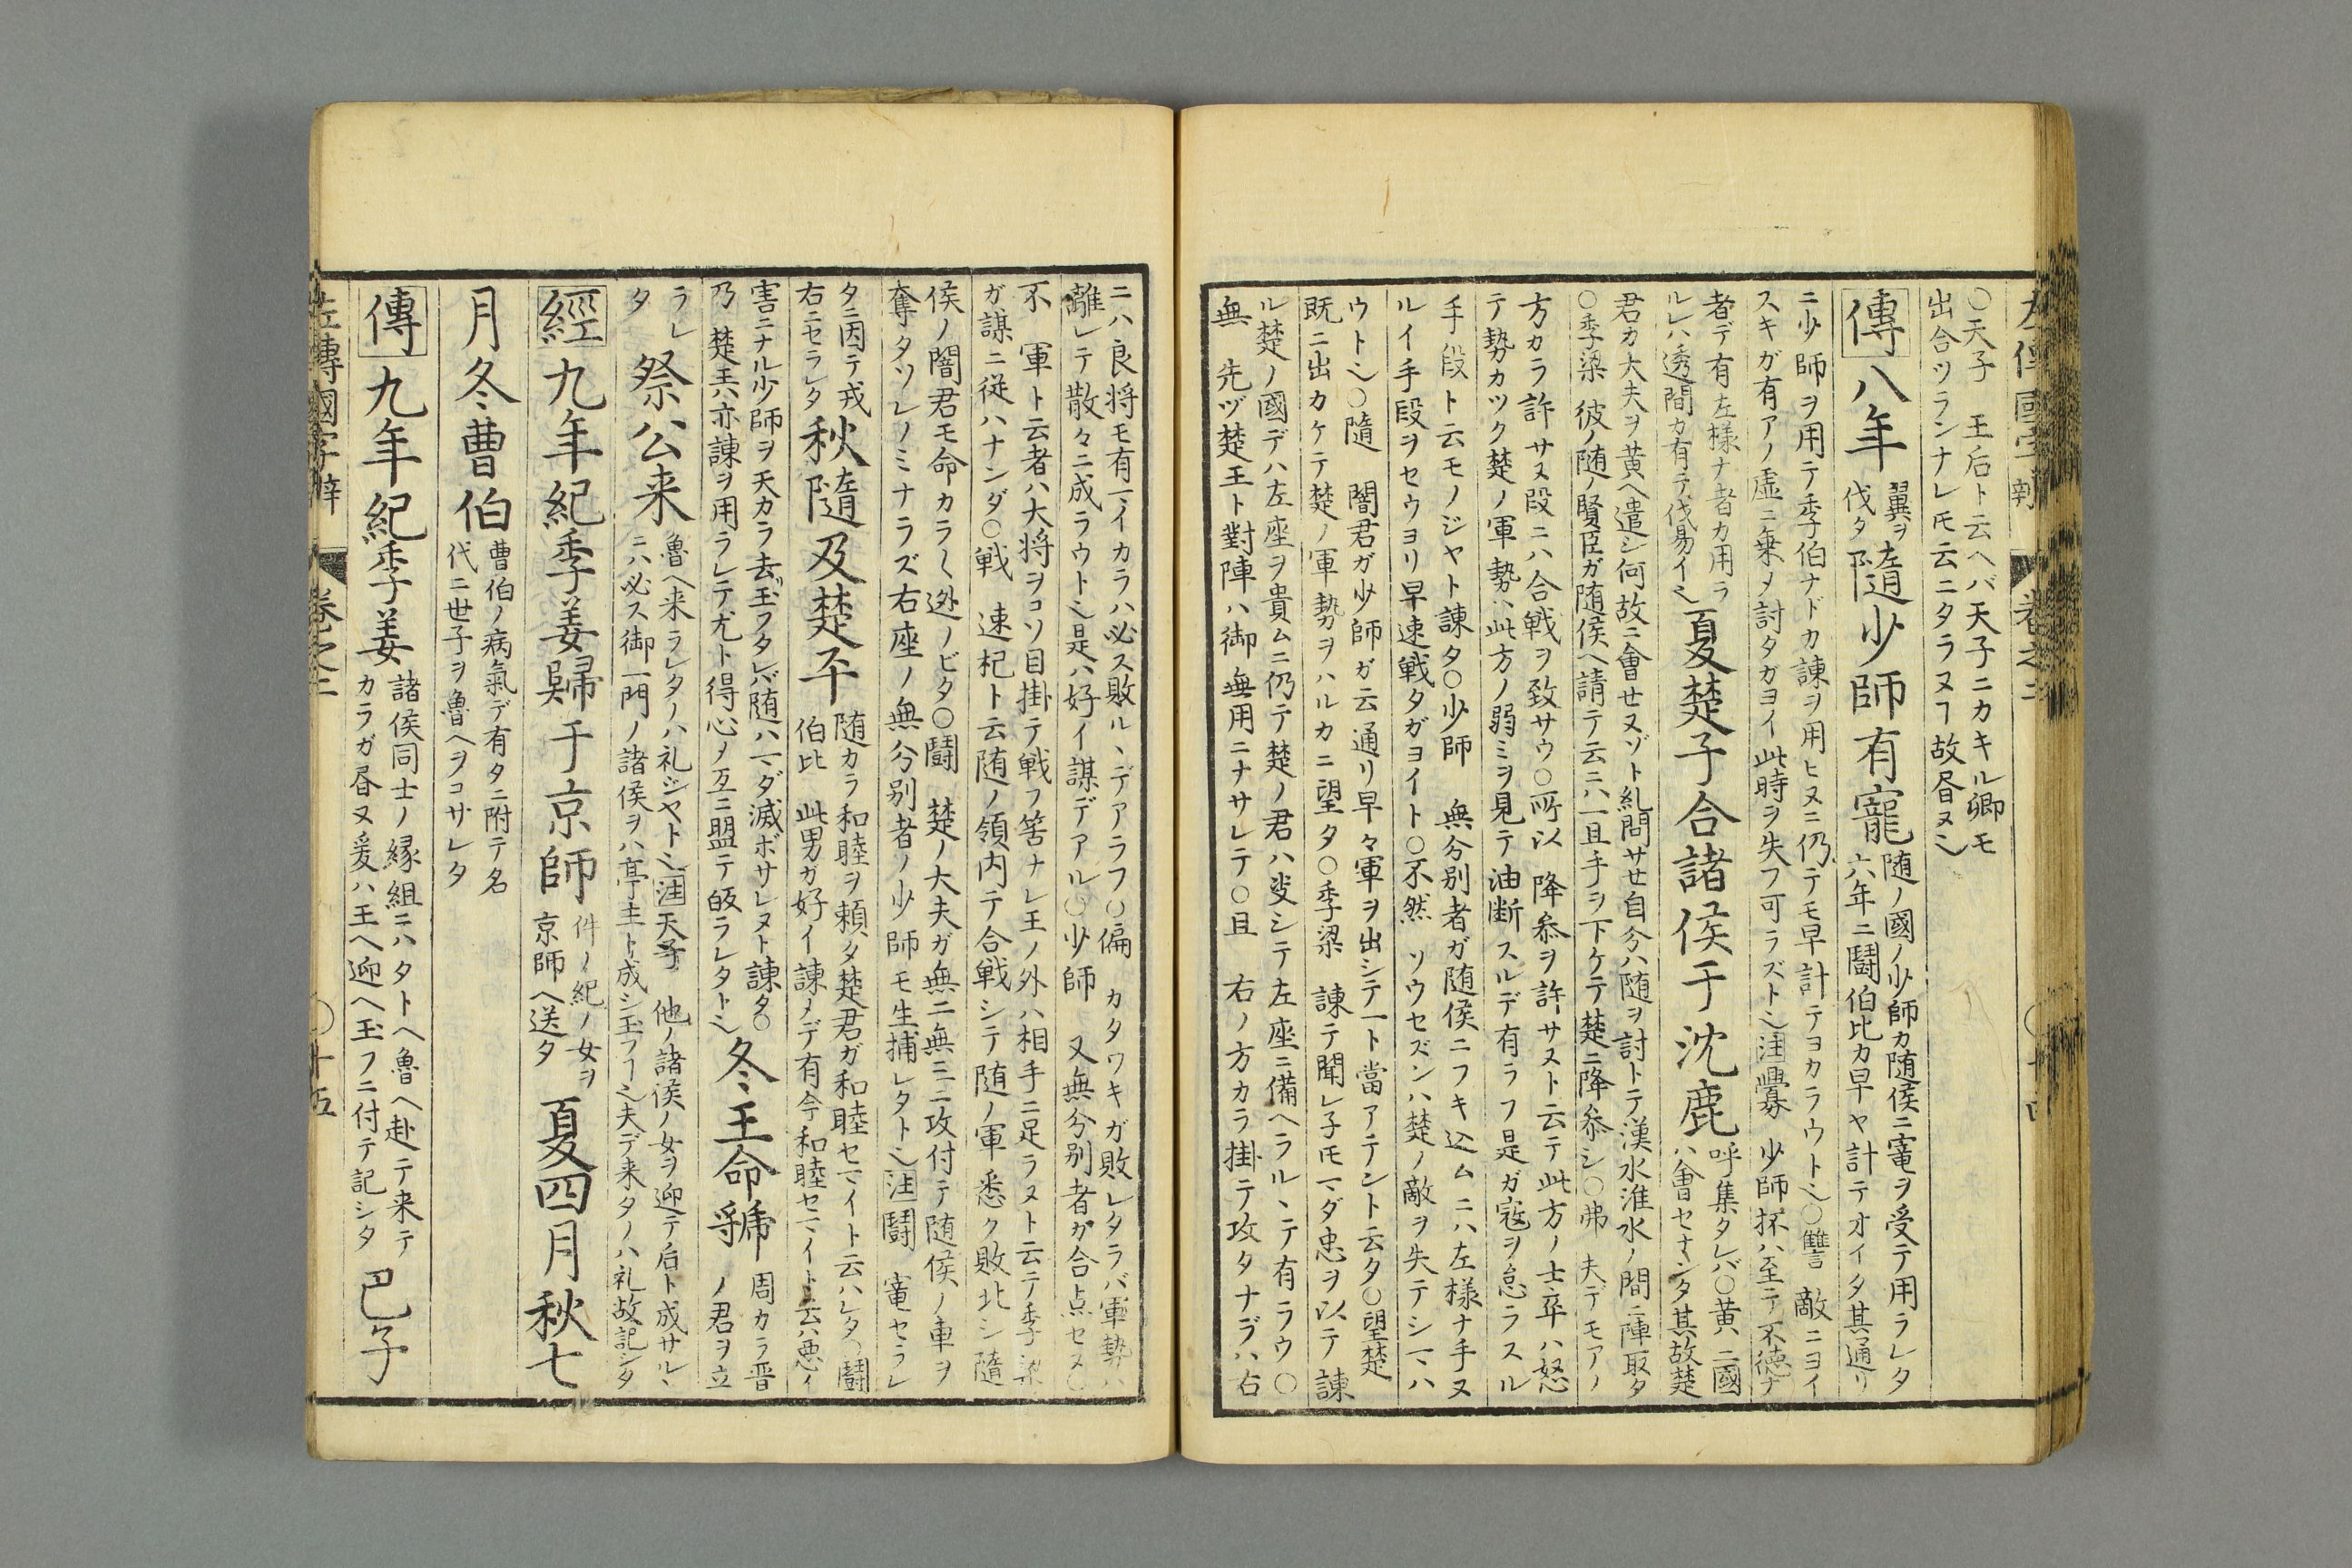 左傳國字辨　卷之二　○十四
○天子　王后ト云ヘバ天子ニカキル卿モ
出合ツランナレ𪜈云ニタラヌヿ故昏ヌ也
傳八年
翼ヲ
伐タ
隨少師有寵
随ノ國ノ少師カ随侯ニ寵ヲ受テ用ラレタ
六年ニ鬪伯比カ早ヤ計テオイタ其通リ
ニ少師ヲ用テ季伯ナドカ諌ヲ用ヒヌニ仍テモ早計テヨカラウト也○讐　敵ニヨイ
スキガ有アノ虚ニ乗メ討タガヨイ此時ヲ失フ可ラズト也注釁　少師抔ハ至テ不徳ナ
者デ有左様ナ者カ用ラ
ルレハ透間カ有テ伐易イ也
夏楚子合諸侯于沈鹿
呼集タレバ○黄ノ二國
ハ會セナンタ其故楚
君カ大夫ヲ黄ヘ遣シ何故ニ會せヌゾト糺問サせ自分ハ随ヲ討トテ漢水淮水ノ間ニ陣取タ
○季梁　彼ノ随ノ賢臣ガ随侯ヘ請テ云ニハ一旦手ヲ下ケテ楚ニ降参シ○弗　夫デモアノ
方カラ許サヌ段ニハ合戦ヲ致サウ○所以　降参ヲ許サヌト云テ此方ノ士卒ハ怒
テ勢カツク楚ノ軍勢ハ此方ノ弱ミヲ見テ油断スルデ有ラフ是ガ寇ヲ怠ラスル
手段ト云モノジヤト諌タ○少師　無分別者ガ随侯ニフキ込ムニハ左様ナ手ヌ
ルイ手段ヲセウヨリ早速戦タガヨイト○不然　ソウセズンハ楚ノ敵ヲ失テシマハ
ウト也○隨　闇君ガ少師ガ云通リ早々軍ヲ出シテ一ト當アテント云タ○望楚
既ニ出カケテ楚ノ軍勢ヲハルカニ望タ○季梁　諌テ聞レ子𪜈マダ忠ヲ以テ諌
ル楚ノ國デハ左座ヲ貴ムニ仍テ楚ノ君ハ必シテ左座ニ備ヘラルヽテ有ラウ○
無　先ヅ楚王ト對陣ハ御無用ニナサレテ○且　右ノ方カラ掛テ攻タナラハ右
ニハ良将モ有マイカラハ必ス敗ルヽデアラフ○偏　カタワキガ敗レタラバ軍勢ハ
離レテ散々ニ成ラウト也是ハ好イ謀デアル○少師　又無分別者ガ合点セヌ○
不　軍ト云者ハ大将ヲコソ目掛テ戦フ筈ナレ王ノ外ハ相手ニ足ラヌト云テ季梁
ガ謀ニ従ハナンダ○戦　速杞ト云随ノ領内テ合戦シテ随ノ軍悉ク敗北シ隨
侯ノ闇君モ命カラ〱迯ノビタ○鬪　楚ノ大夫ガ無二無三ニ攻付テ随侯ノ車ヲ
奪タソレノミナラズ右座ノ無分別者ノ少師モ生捕レタト也注鬪　寵セラレ
タニ因テ戎
右ニセラレタ
秋隨及楚平
随カラ和睦ヲ頼タ楚君ガ和睦セマイト云ハレタ○鬪
伯比　此男ガ好イ諌メデ有今和睦セマイト云ハ悪イ
害ニナル少師ヲ天カラ去玉フタレバ随ハマダ滅ボサレヌト諌タ○
乃　楚王ハ亦諌ヲ用ラレテ尤ト得心メ互ニ盟テ皈ラレタト也
冬王命虢
周カラ晋
ノ君ヲ立
ラレ
タ
祭公来
魯ヘ来ラレタノハ礼ジヤト也注天子　他ノ諸侯ノ女ヲ迎テ后ト成サルヽ
ニハ必ス御一門ノ諸侯ヲハ亭主ト成シ玉フヿ也夫デ来タノハ礼故記シタ
經九年紀季姜歸于京師
件ノ紀ノ女ヲ
京師ヘ送タ
夏四月秋七
月冬曹伯
曹伯ノ病氣デ有タニ附テ名
代ニ世子ヲ魯ヘヲコサレタ
傳九年紀季姜
諸侯同士ノ縁組ニハタトヘ魯ヘ赴テ来テ
カラガ昏ヌ爰ハ王ヘ迎ヘ玉フニ付テ記シタ
巴子
左傳國字辨　卷之二　○十五